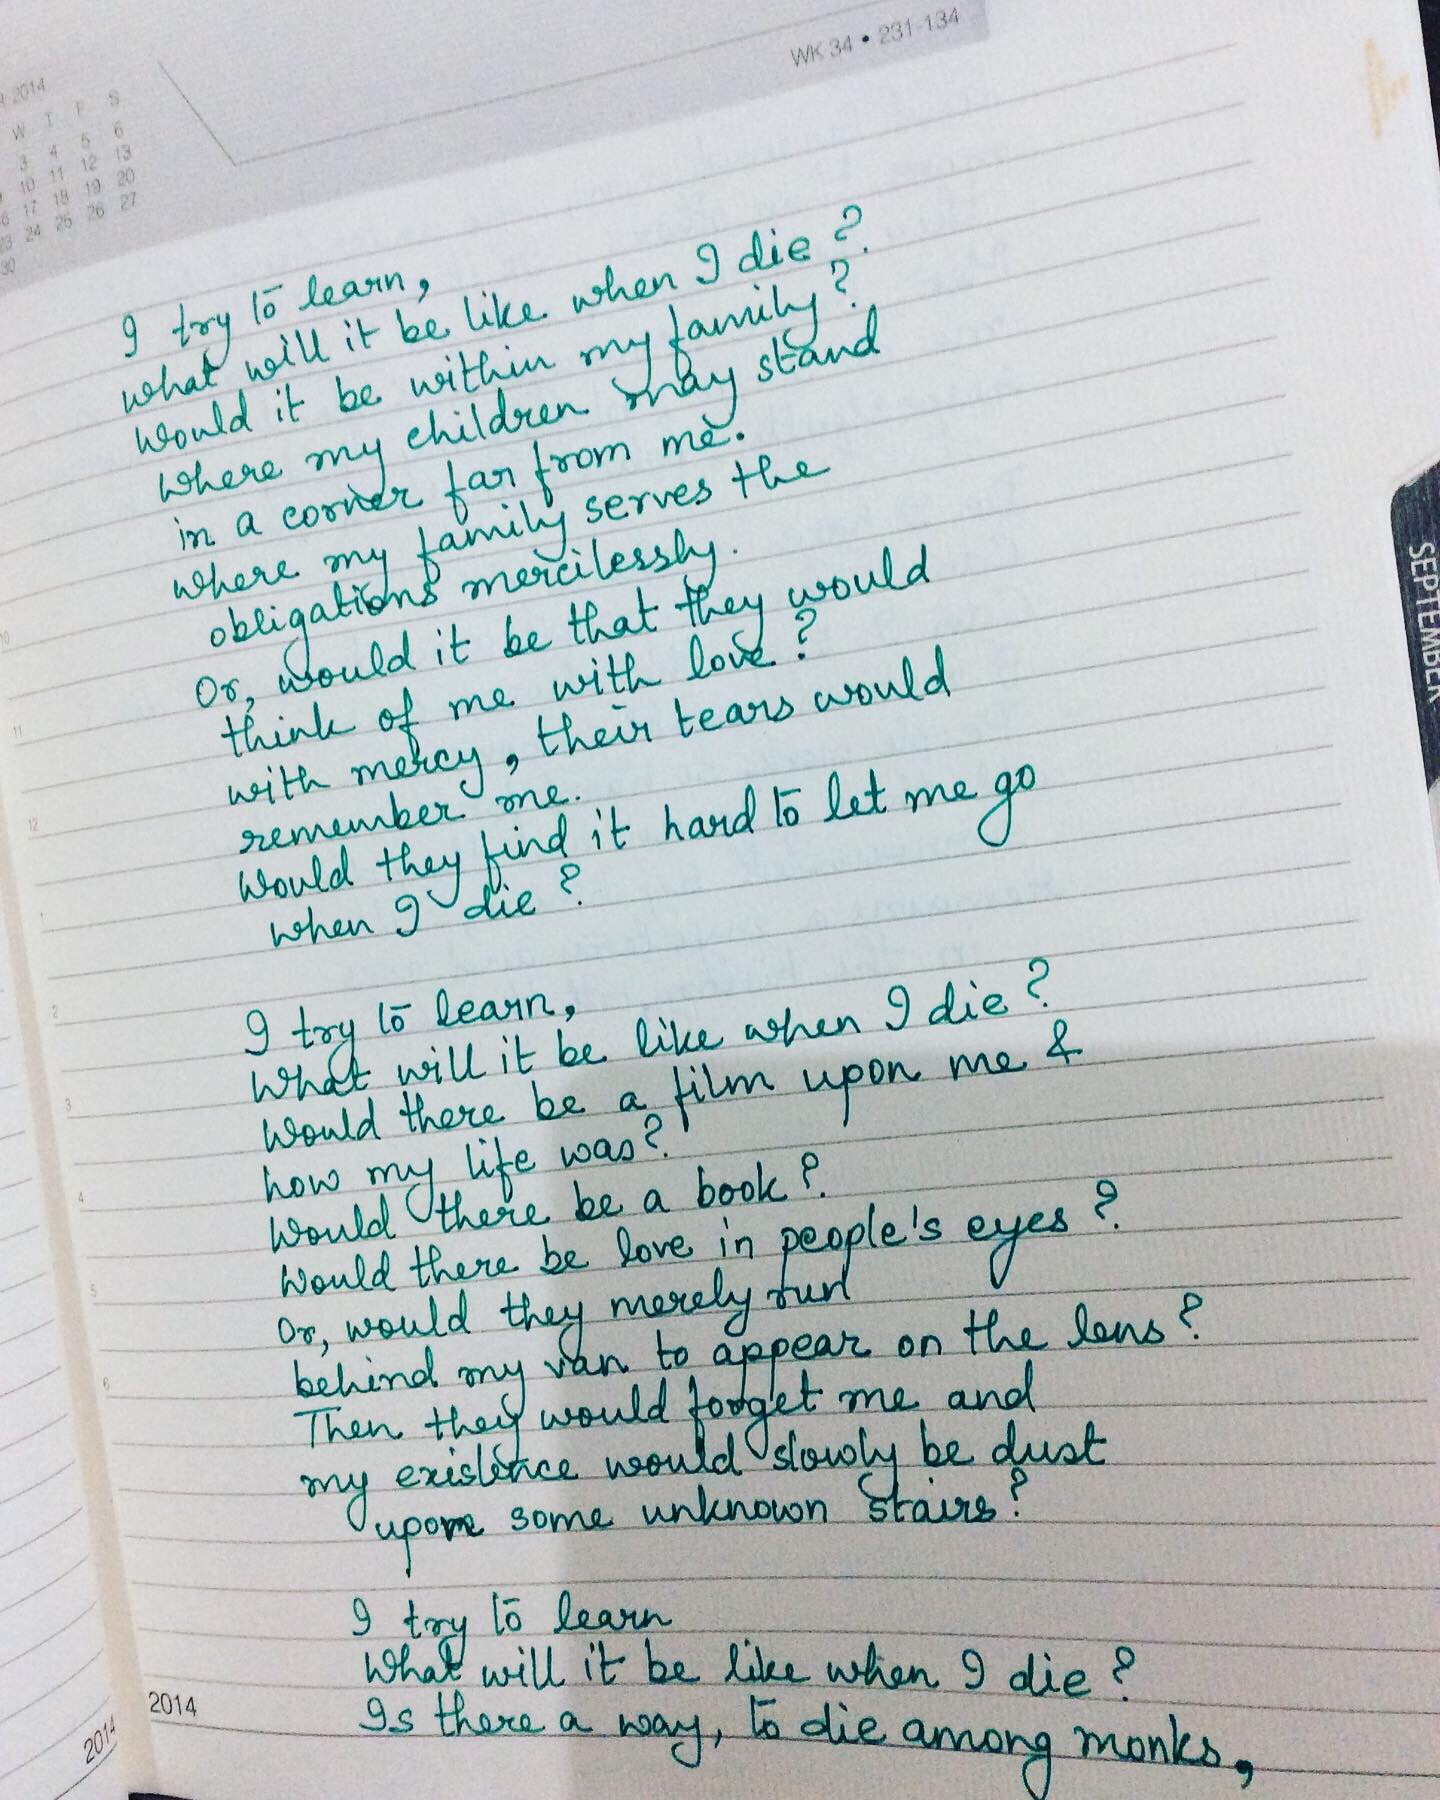 2014
W T F S
3 4 5 6
10 11 12 13
17 18 19 20
23 24 25 26 27
30
WK 34 • 231-134
I try to learn,
what will it be like when I die?
Would it be within my family?
Where my children may stand
in a corner far from me.
Where my family serves the
obligations mercilessly.
Or, would it be that they would
think of me with love?
with mercy, their tears would
remember me.
Would they find it hard to let me go
when I die?
I try to learn,
What will it be like when I die?
Would there be a film upon me &
how my life was?
Would there be a book?
Would there be love in people's eyes?
Or, would they merely run
behind my van to appear on the lens?
Then they would forget me and
my existence would slowly be dust
upon some unknown stairs?
I try to learn
What will it be like when I die?
Is there a way, to die among monks,
10
11
12
1
2
3
4
5
6
2014
2014
SEPTEMBER